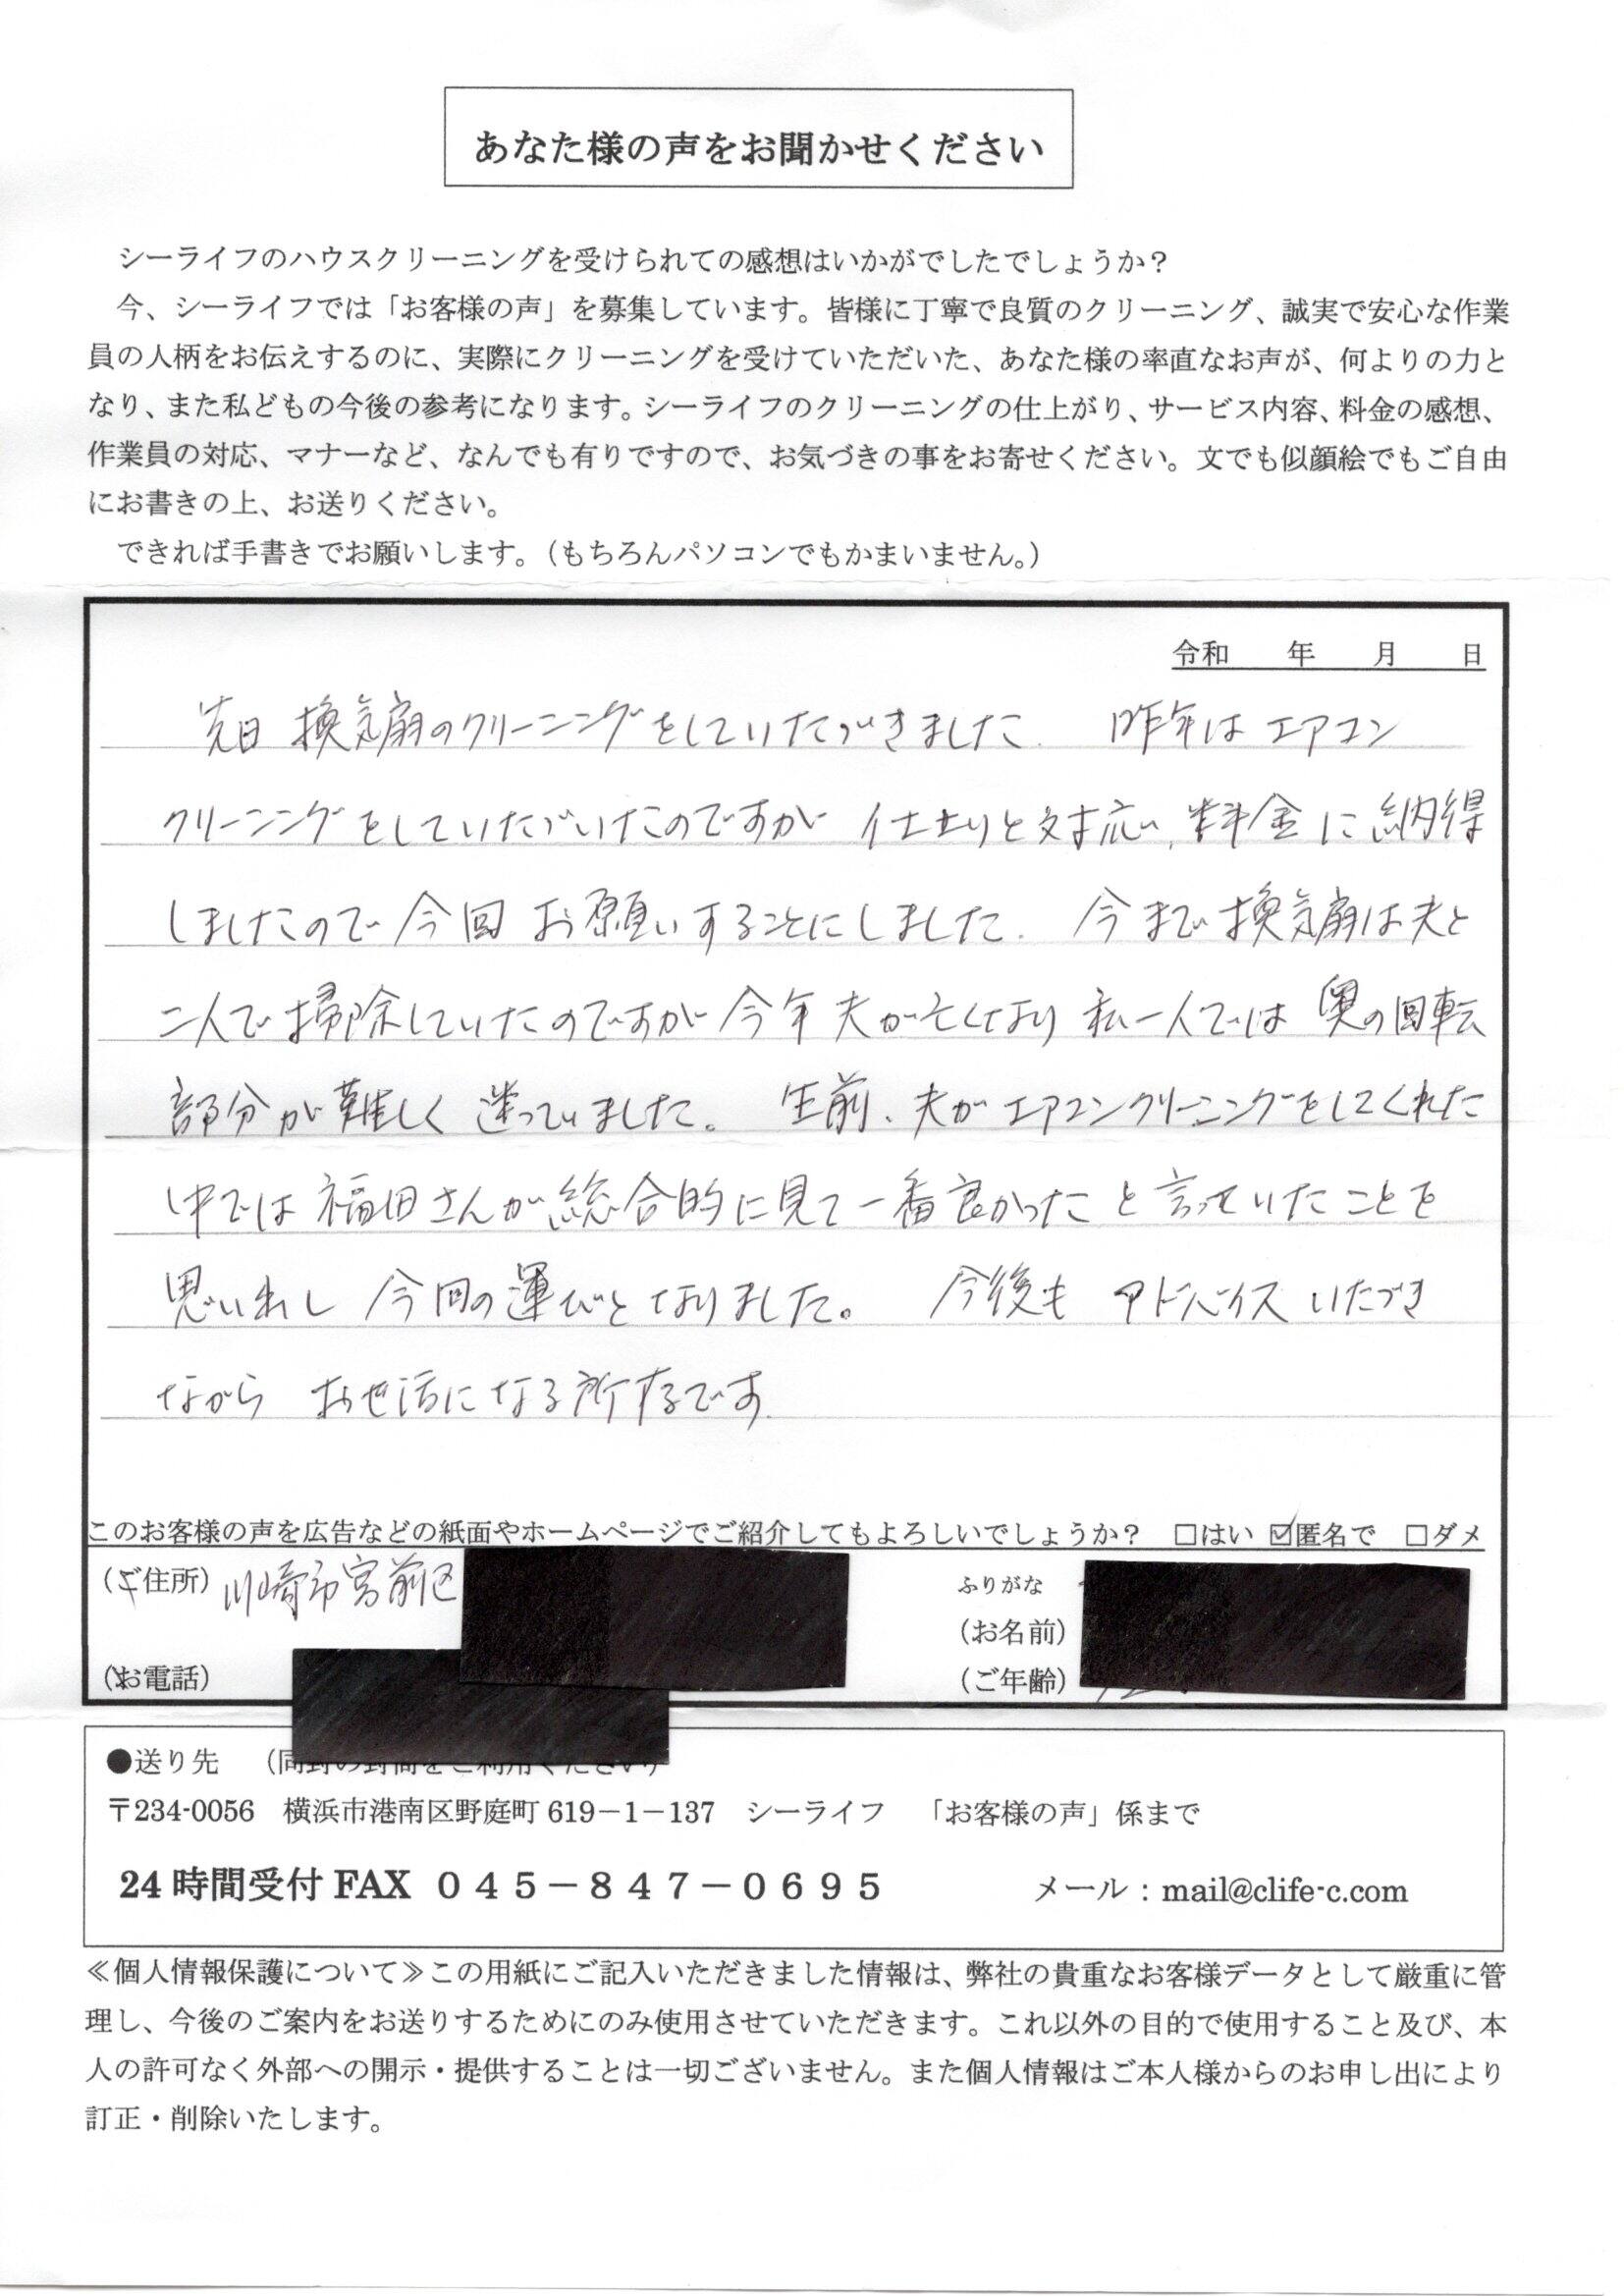 あなた様の声をお聞かせください
シーライフのハウスクリーニングを受けられての感想はいかがでしたでしょうか？
今、シーライフでは「お客様の声」を募集しています。皆様に丁寧で良質のクリーニング、誠実で安心な作業
員の人柄をお伝えするのに、実際にクリーニングを受けていただいた、あなた様の率直なお声が、何よりの力と
なり、また私どもの今後の参考になります。シーライフのクリーニングの仕上がり、サービス内容、料金の感想、
作業員の対応、マナーなど、なんでも有りですので、お気づきの事をお寄せください。文でも似顔絵でもご自由
にお書きの上、お送りください。
できれば手書きでお願いします。（もちろんパソコンでもかまいません。）
令和　　年　　月　　日
先日 換気扇のクリーニングをしていただきました. 昨年は エアコン
クリーニングをしていただいたのですが 仕上りと対応、料金に納得
しましたので 今回 お願いすることにしました. 今まで換気扇は夫と
二人で掃除していたのですが 今年 夫が亡くなり 私一人では 奥の回転
部分が難しく 迷っていました。 生前、夫が エアコンクリーニングをしてくれた
中では 福田さんが総合的に見て一番良かった と言っていたことを
思い出し 今回の運びとなりました。 今後も アドバイス いただき
ながら お世話になる所存です.
このお客様の声を広告などの紙面やホームページでご紹介してもよろしいでしょうか？　□はい ☑匿名で　□ダメ
（ご住所）川崎市宮前区
ふりがな
（お名前）
（お電話）
（ご年齢）
●送り先
〒234-0056　横浜市港南区野庭町 619－1－137　シーライフ　「お客様の声」係まで
24 時間受付 FAX ０４５－８４７－０６９５　メール：mail@clife-c.com
≪個人情報保護について≫この用紙にご記入いただきました情報は、弊社の貴重なお客様データとして厳重に管
理し、今後のご案内をお送りするためにのみ使用させていただきます。これ以外の目的で使用すること及び、本
人の許可なく外部への開示・提供することは一切ございません。また個人情報はご本人様からのお申し出により
訂正・削除いたします。